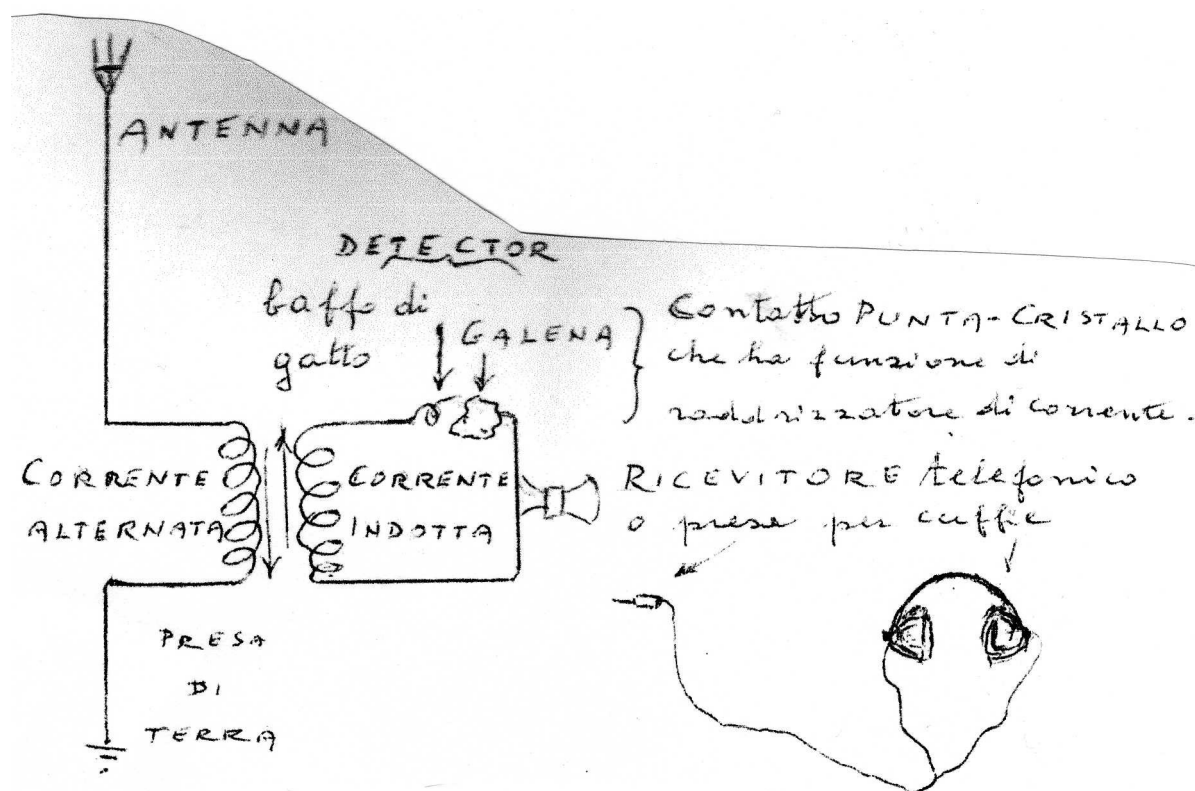 ANTENNA
DETECTOR
baffo di
gatto
GALENA
Contatto PUNTA-CRISTALLO
che ha funzione di
raddrizzatore di corrente.
CORRENTE
ALTERNATA
CORRENTE
INDOTTA
RICEVITORE telefonico
o presa per cuffie
PRESA
DI
TERRA